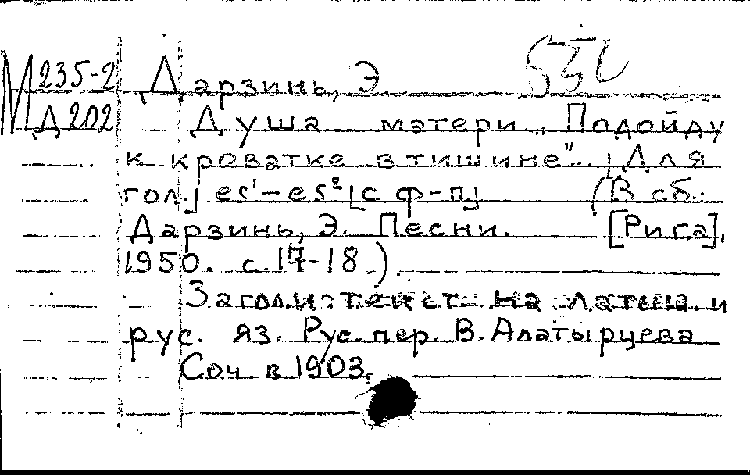 М 235-2 Дарзинь, Э.
Д 202 Душа матери „Подойду
к кроватке в тишине". [Для
гол.] es¹-es² [с ф-п.] (В сб.:
Дарзинь, Э. Песни. [Рига],
1950. с. 17-18.)
Загол. и текст на латыш. и
рус. яз. Рус. пер. В. Алатырцева
Соч в 1903.